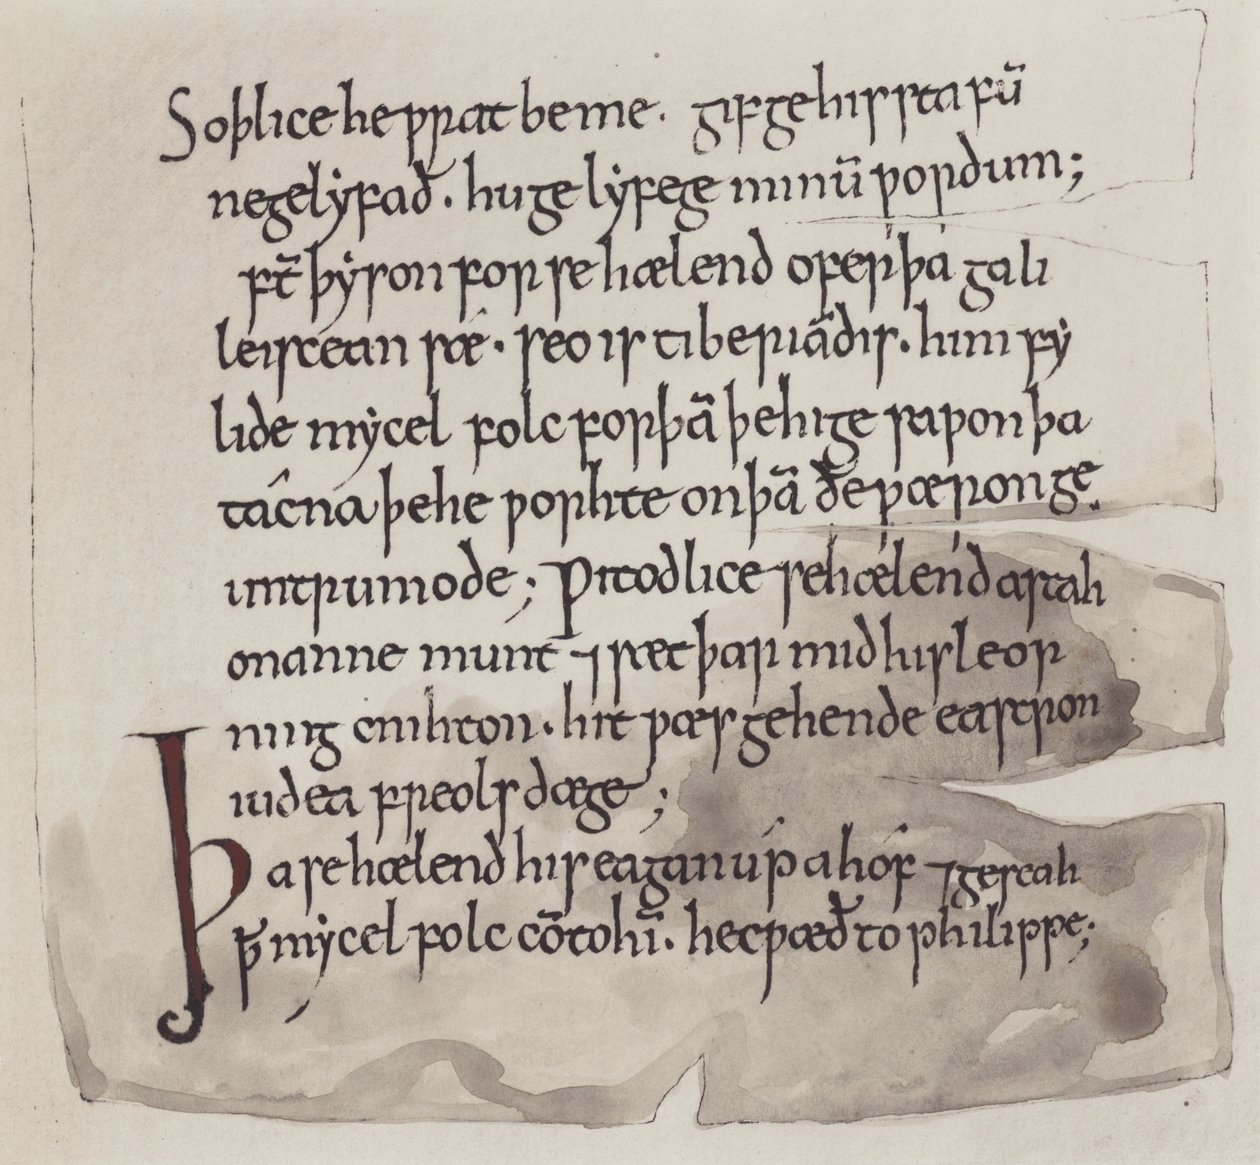 Soþlice he ƿrat be me. gif ge his stafū
ne gelẏfað. hu ge lẏfe ge minū ƿordum;
ft̄ þẏson for se hælend ofer þá gali
leiscean sǽ. seo is tiberiādis. him fẏ
lide mẏcel folc forþā þe hi ge saƿon þa
tâcna þe he ƿorhte on þā ðe ƿæron ge
untrumode; Ƿitodlice se hælend astah
on anne munt ⁊ sæt þar mid his leor
ning cnihton. hit ƿæs gehende eastron
iudea freols dæge;
Þa se hælend his eagan úp ahóf ⁊ geseah
ꝥ mẏcel folc cō to hī. he cƿæð to philippe;